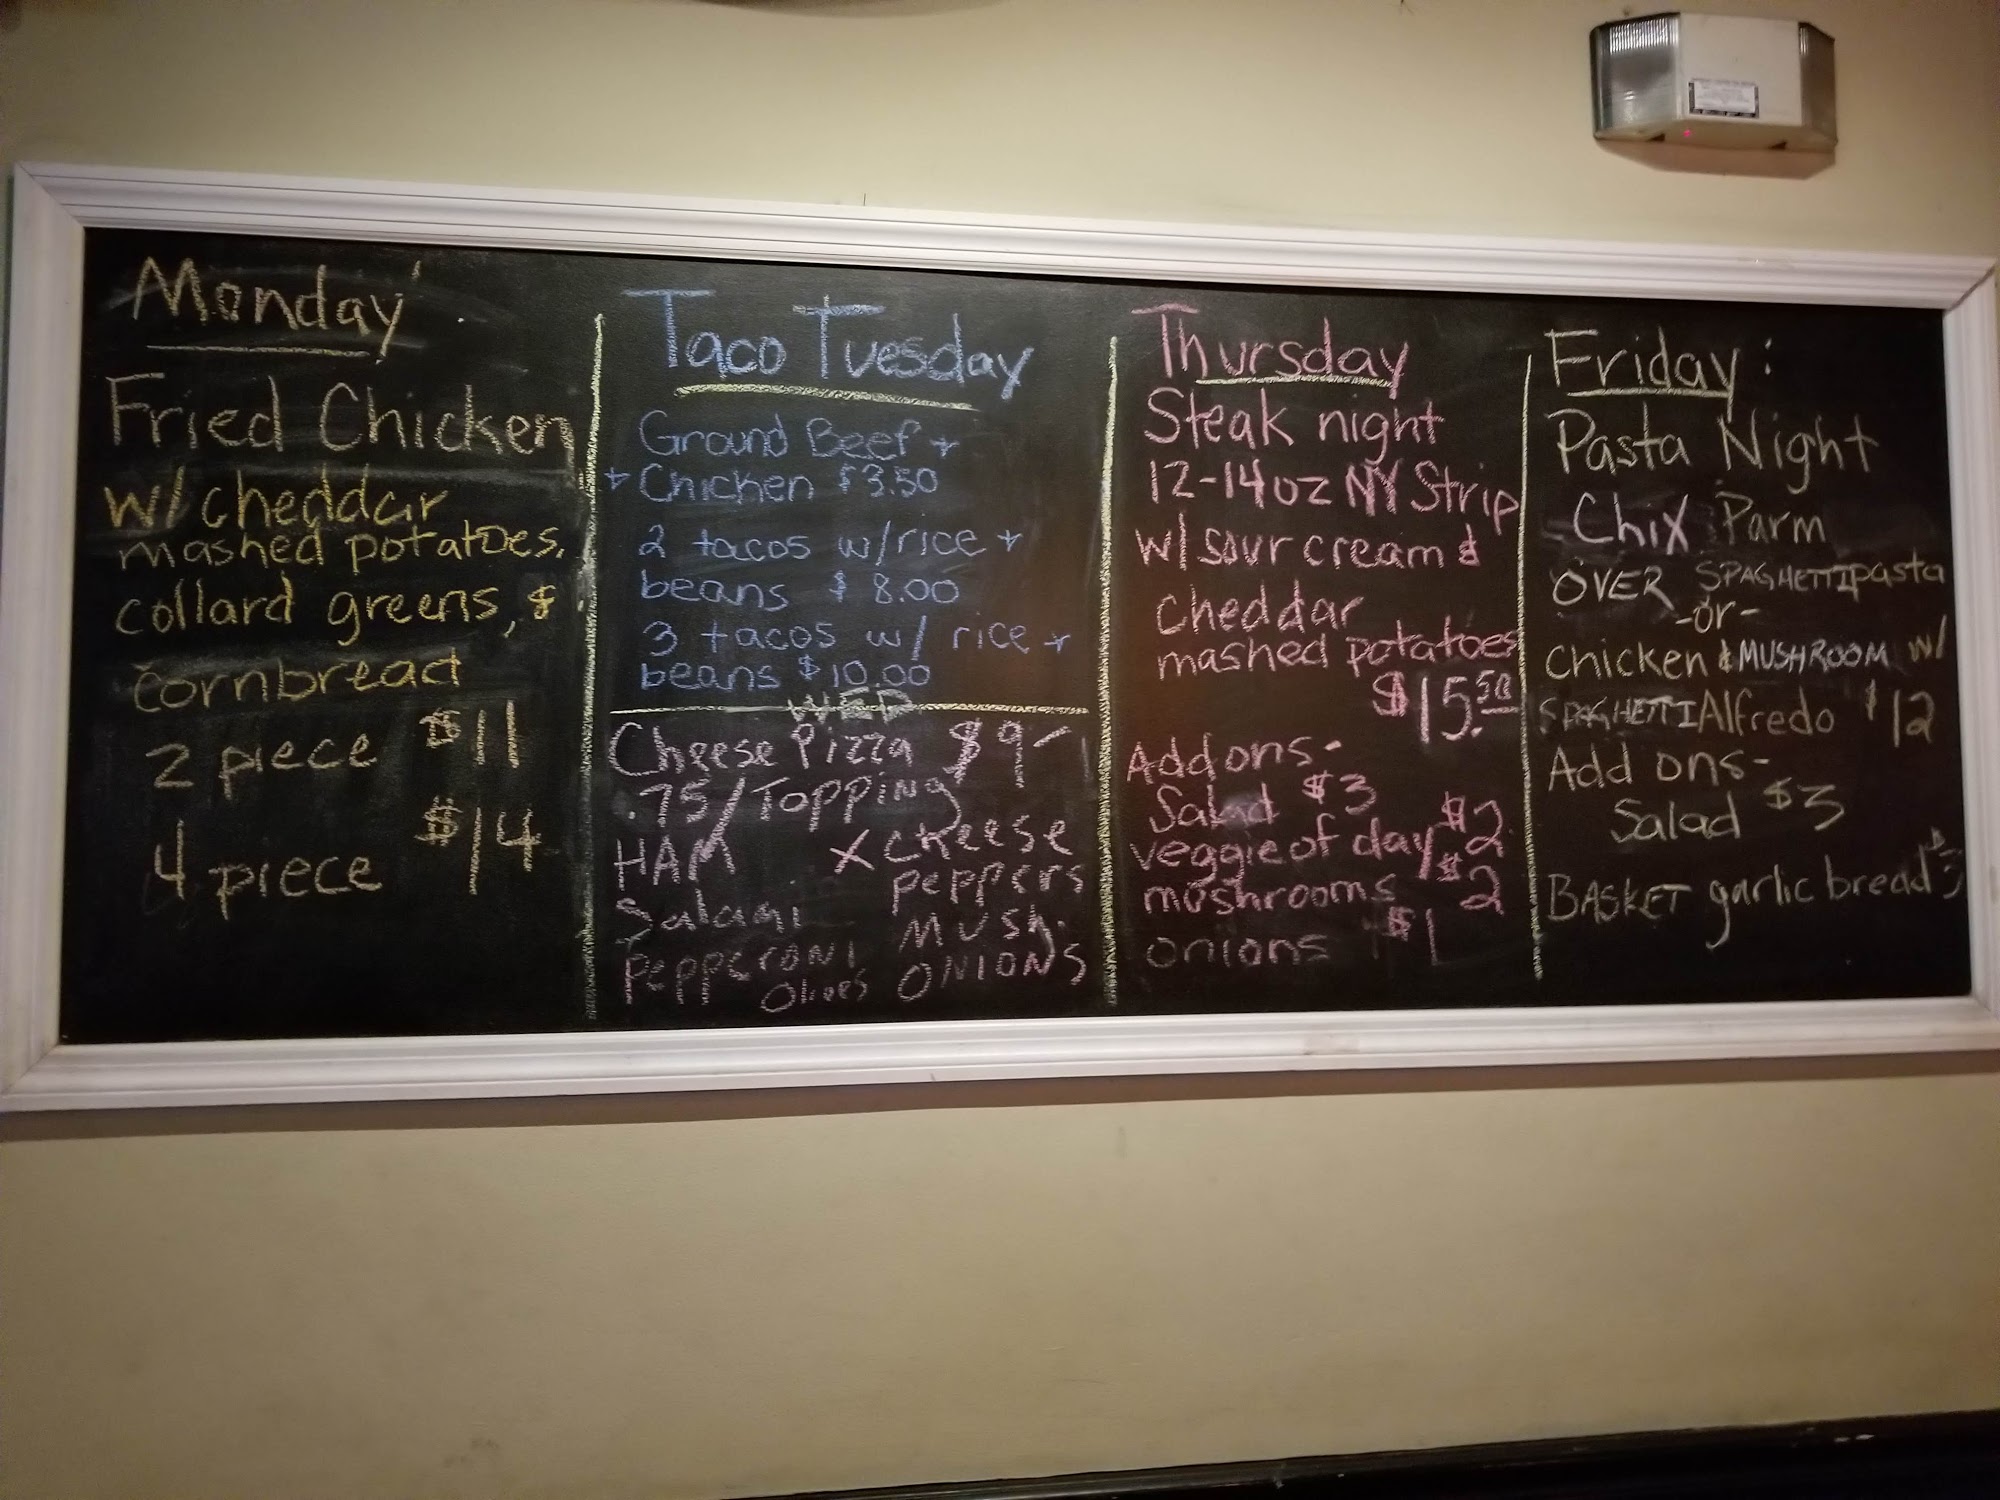 Monday
Fried Chicken
w/ cheddar
mashed potatoes,
collard greens, &
cornbread
2 piece $11
4 piece $14
Taco Tuesday
Ground Beef +
+ Chicken $3.50
2 tacos w/rice +
beans $8.00
3 tacos w/ rice +
beans $10.00
WED
Cheese Pizza $9-
.75/Topping
HAM X CHEESE
Salami PEPPERS
PEPPERONI MUSH.
Olives ONIONS
Thursday
Steak night
12-14oz NY Strip
w/ sour cream &
cheddar
mashed potatoes
$15.50
Add ons-
Salad $3
veggie of day $2
mushrooms $2
onions $1
Friday:
Pasta Night
Chix Parm
OVER SPAGHETTI pasta
-or-
Chicken & MUSHROOM w/
SPAGHETTI Alfredo $12
Add ons-
Salad $3
BASKET garlic bread $3